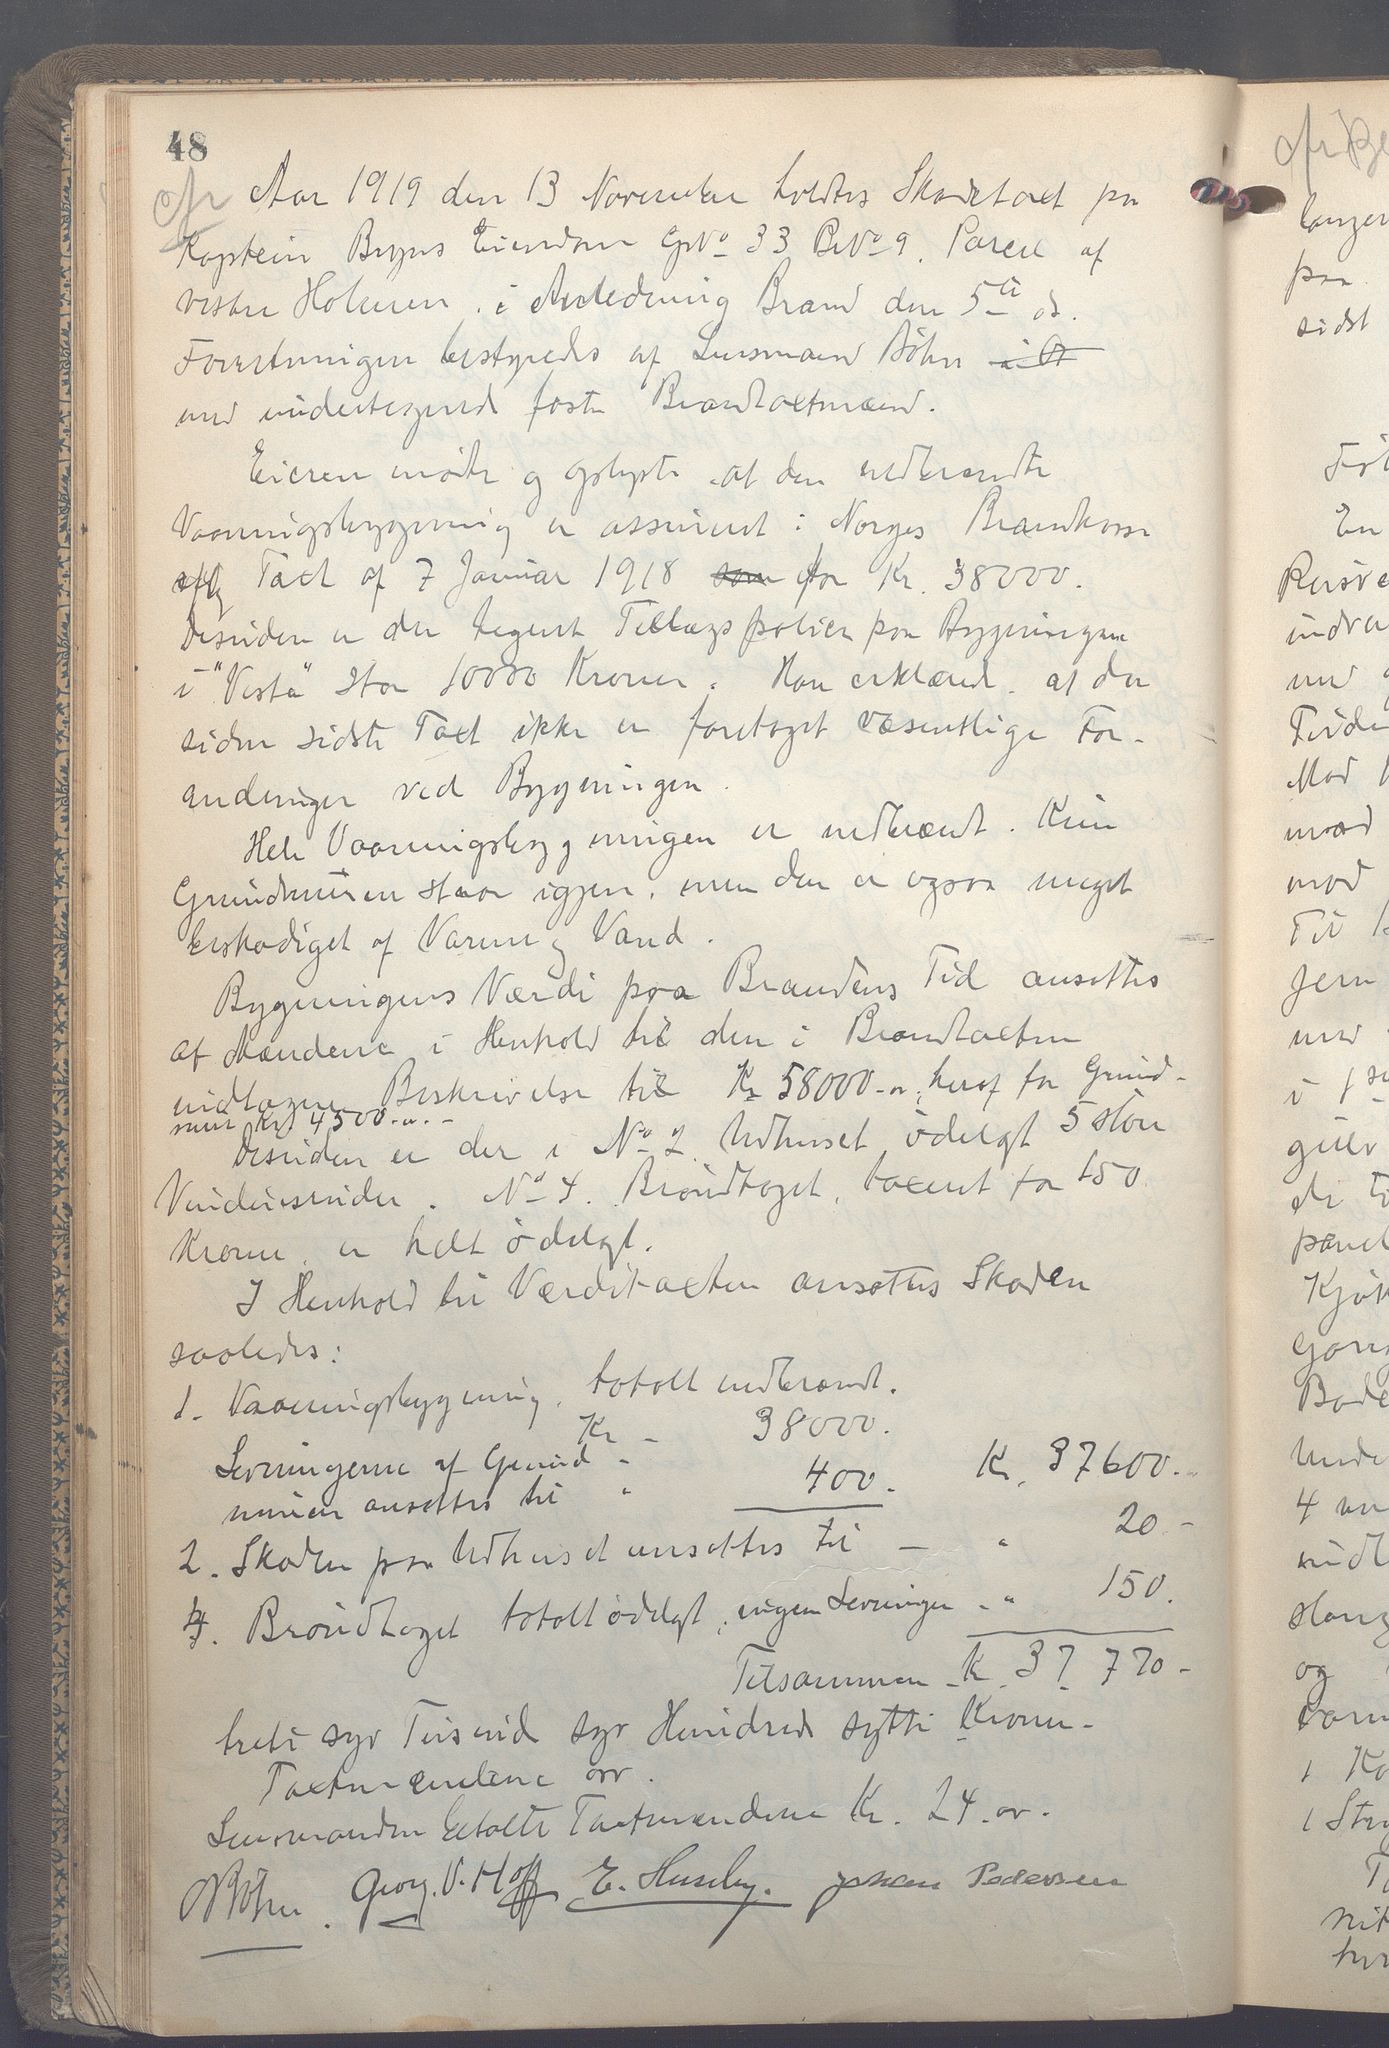 48
Aar 1919 den 13 November holdtes Skadetaxt paa
Kaptein Bryns Eiendom GNo 33 BNo 9. Parcel af
vestre Holmen. i Anledning Brand den 5te ds.
Forretningen bestyredes af Lensmand Bøhn i O
med undertegnede faste Brandtaxtmænd.
Eieren mødte og oplyste at den nedbrændte
Vaaningsbygning er assureret i Norges Brandkasse
eftg Taxt af 7 Januar 1918 som for Kr. 38000.
Desuden er der tegnet Tillægspolice paa Bygningen
i "Vesta" stor 10000 Kroner. Han erklærede at der
siden sidste Taxt ikke er foretaget væsentlige For-
andringer ved Bygningen.
Hele Vaaningsbygningen er nedbrændt. Kun
Grundmuren staar igjen, men den er ogsaa meget
beskadiget af Varme og Vand.
Bygningens Værdi paa Brandens Tid ansattes
af Mændene i Henhold til den i Brandtaxten
indtagne Beskrivelse til Kr 58000 heraf for Grund-
mur Kr 4500.
Desuden er der i No 2. Udhuset ødelagt 5 store
Vinduesruder. No 4. Brøndtaget, taxeret for 150
Kroner, er helt ødelagt.
I Henhold til Værditaxten ansattes Skaden
saaledes:
1. Vaaningsbygning, totalt nedbrændt.
Kr - 38000.
Levningerne af Grund-
muren ansattes til " 400. Kr. 37600.-
2. Skaden paa Udhuset ansattes til - " 20 -
4. Brøndtaget totalt ødelagt, ingen Levninger - " 150.
Tilsammen - Kr. 37 770 -
treti syv Tusind syv Hundrede sytti Kroner.
Taxtmændene
Lensmanden betalte Taxtmændene Kr. 24.
Bøhn. Georg. V. Hoff E. Huseby. Johan Pedersen